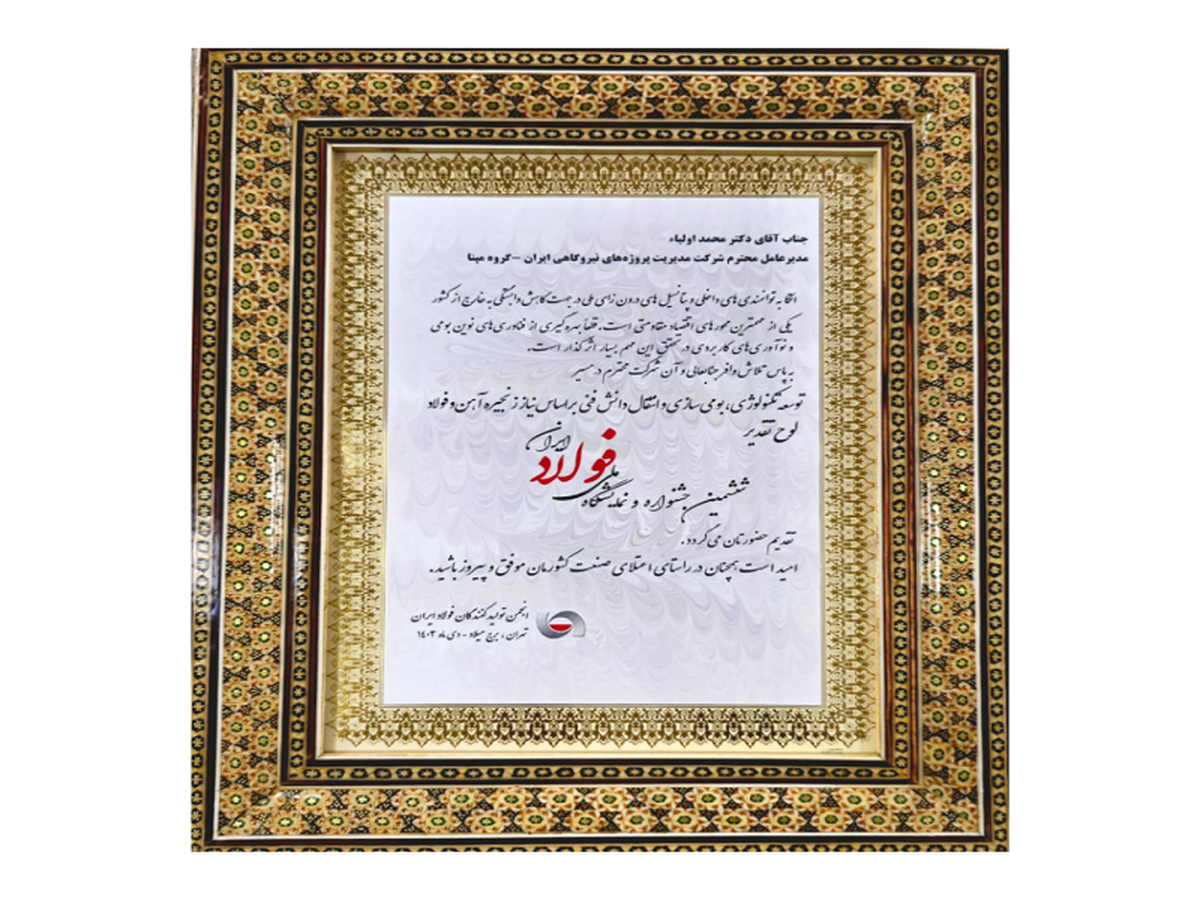 جناب آقای دکتر محمد اولیاء
مدیرعامل محترم شرکت مدیریت پروژه‌های نیروگاهی ایران –گروه مپنا
اتکا به توانمندی های داخلی و پتانسیل های درون زای ملی در جهت کاهش وابستگی به خارج از کشور
یکی از مهمترین محورهای اقتصاد مقاومتی است. قطعاً بهره گیری از فناوری‌های نوین بومی
و نوآوری‌های کاربردی در تحقق این مهم بسیار اثرگذار است.
به پاس تلاش وافر جنابعالی و آن شرکت محترم در مسیر
توسعه تکنولوژی، بومی سازی و انتقال دانش فنی بر اساس نیاز زنجیره آهن و فولاد
لوح تقدیر
ششمین جشنواره و نمایشگاه ملی فولاد ایران
تقدیم حضورتان می گردد.
امید است همچنان در راستای اعتلای صنعت کشورمان موفق و پیروز باشید.
انجمن تولید کنندگان فولاد ایران
تهران، برج میلاد - دی ماه ۱۴۰۳